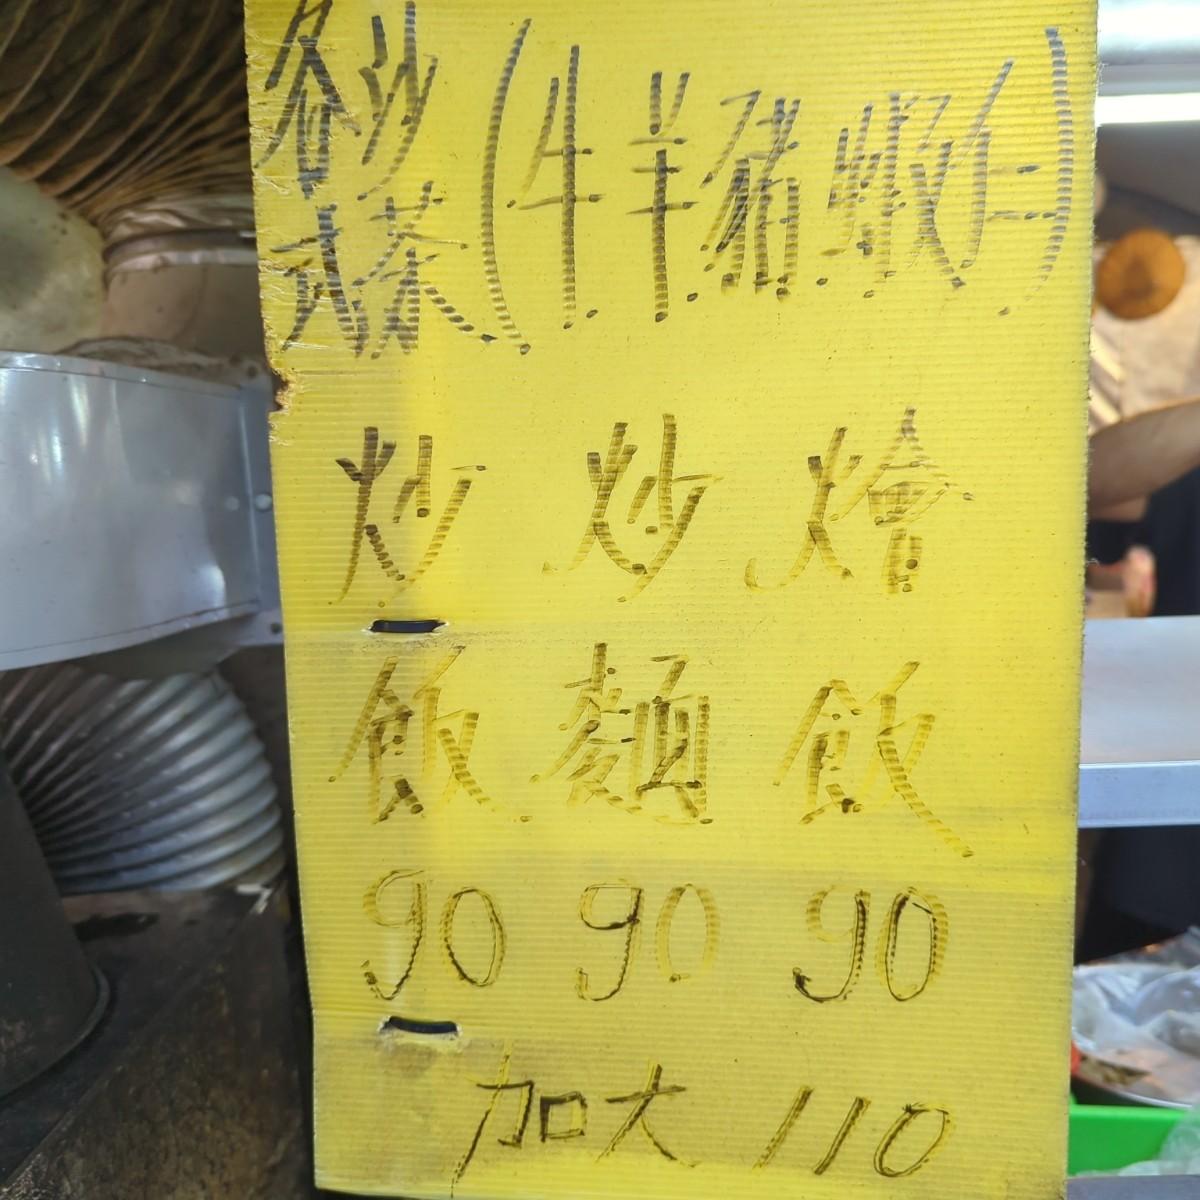 各式
沙茶
(牛.羊.豬.蝦仁.)
炒飯
90
炒麵
90
燴飯
90
加大 110